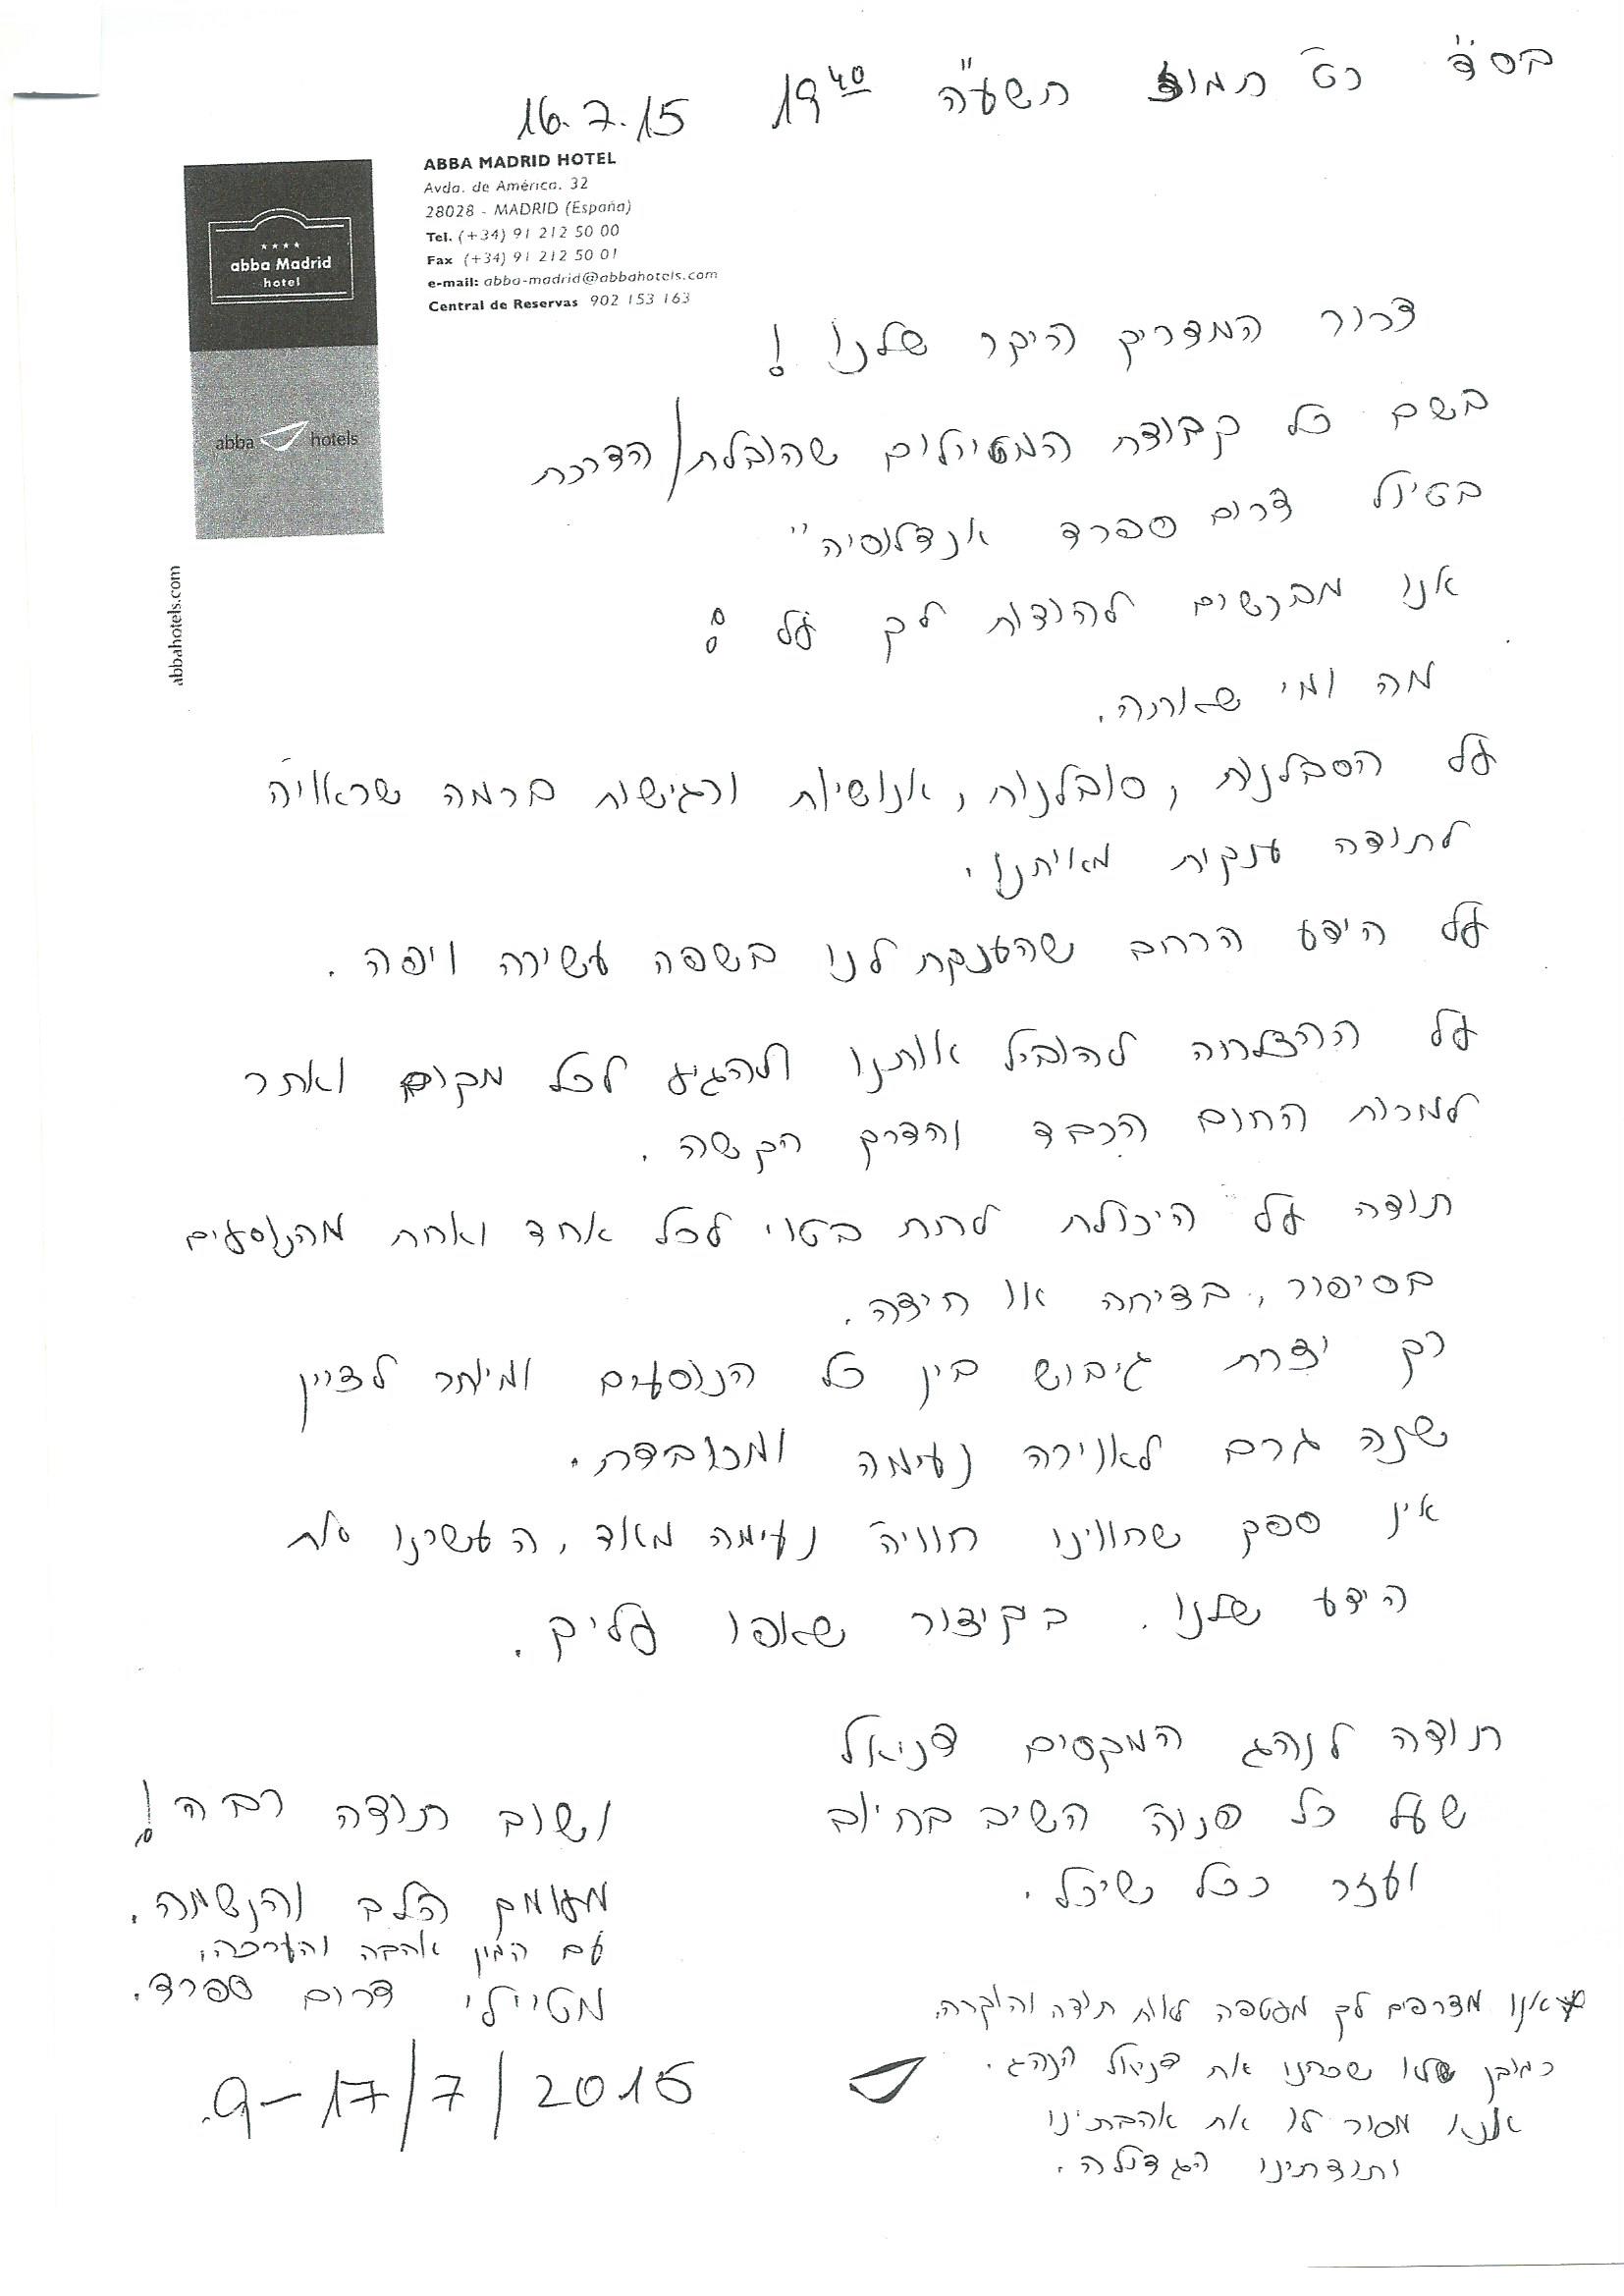 בס"ד כט תמוז תשע"ה 19⁴⁰ 16.7.15
ABBA MADRID HOTEL
Avda. de América, 32
28028 - MADRID (España)
Tel. (+34) 91 212 50 00
Fax (+34) 91 212 50 01
e-mail: abba-madrid@abbahotels.com
Central de Reservas 902 153 163
abba Madrid
hotel
abba hotels
abbahotels.com
דרור המדריך היקר שלנו!
בשם כל קבוצת המטיילים שהובלת/הדרכת
בטיול דרום ספרד אנדלוסיה"
אנו מבקשים להודות לך על:
מה ומי שאתה.
על הסבלנות, סובלנות, אנושיות ורגישות ברמה שראויה
לתודה ענקית מאיתנו.
על הידע הרחב שהענקת לנו בשפה עשירה ויפה.
על ההצלחה להוביל אותנו ולהגיע לכל מקום ואתר
למרות החום הכבד והדרך הקשה.
תודה על היכולת לתת בטוי לכל אחד ואחת מהנוסעים
בסיפור, בדיחה או חידה.
כך יצרת גיבוש בין כל הנוסעים ומיותר לציין
שזה גרם לאוירה נעימה ומכובדת.
אין ספק שחווינו חוויה נעימה מאוד, העשרנו את
הידע שלנו. בקיצור שאפו עליך.
תודה לנהג המקסים דניאל
שעל כל פניה השיב בחיוב
ועזר ככל שיכל.
ושוב תודה רבה!
מעומק הלב והנשמה.
עם המון אהבה והערכה,
מטיילי דרום ספרד.
9-17/7/2015
*אנו מצרפים לך מעטפה לאות תודה והוקרה.
כמובן שלא שכחנו את דניאל הנהג.
אנא מסור לו את אהבתינו
ותודתינו הגדולה.